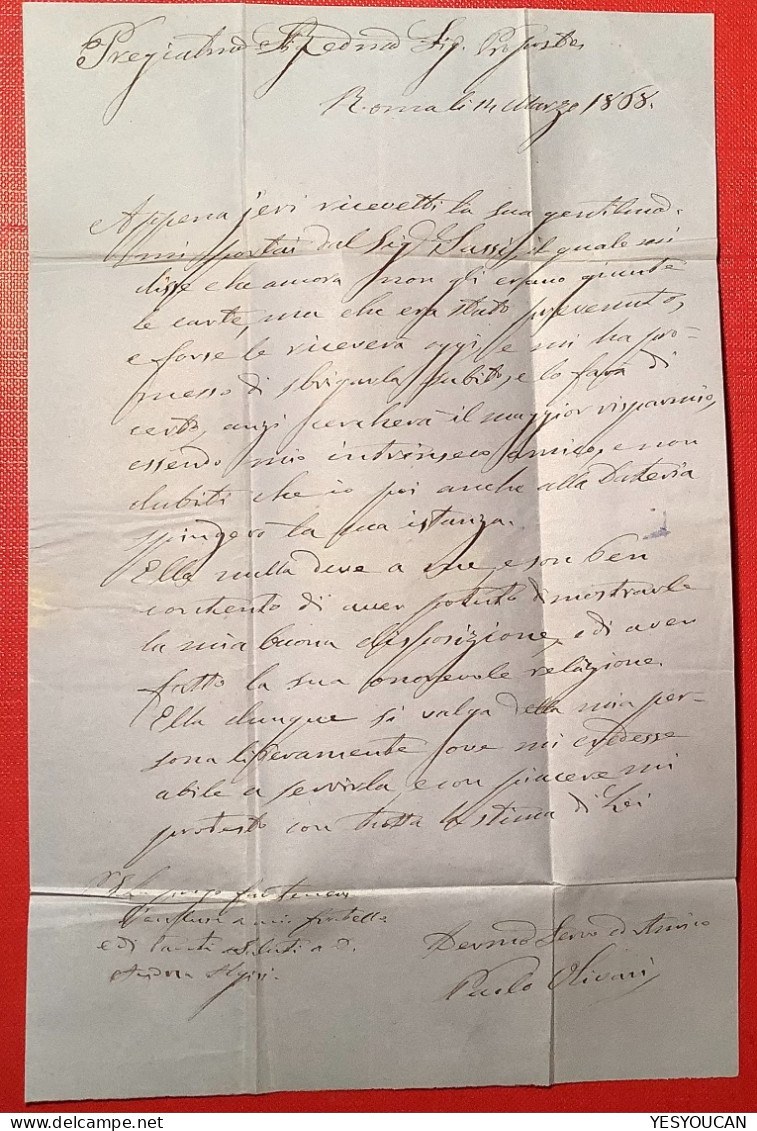 Pregiatmo e Redmo Sig. Proposto
Roma li 14 Marzo 1868.
Appena jeri ricevetti la sua gentilma
mi portai dal Sig. Sassi, il quale mi
disse che ancora non gli erano giunte
le carte, ma che era stato prevenuto,
e forse le riceverà oggi, e mi ha pro-
messo di sbrigarla subito, e lo farà di
certo, anzi cercherà il maggior risparmio,
essendo mio intrinseco amico, e non
dubiti che io poi anche alla Dateria
spingerò la sua istanza.
Ella nulla deve a me, e son ben
contento di aver potuto dimostrarle
la mia buona disposizione, e di aver
fatto la sua onorevole relazione.
Ella dunque si valga della mia per-
sona liberamente ove mi credesse
abile a servirla, e con piacere mi
protesto con tutta la stima di Lei
PS. La prego far tenere
a mio fratello
e di tanti saluti a D.
Andrea
Devmo Servo ed Amico
Paolo Olivari
YESYOUCAN